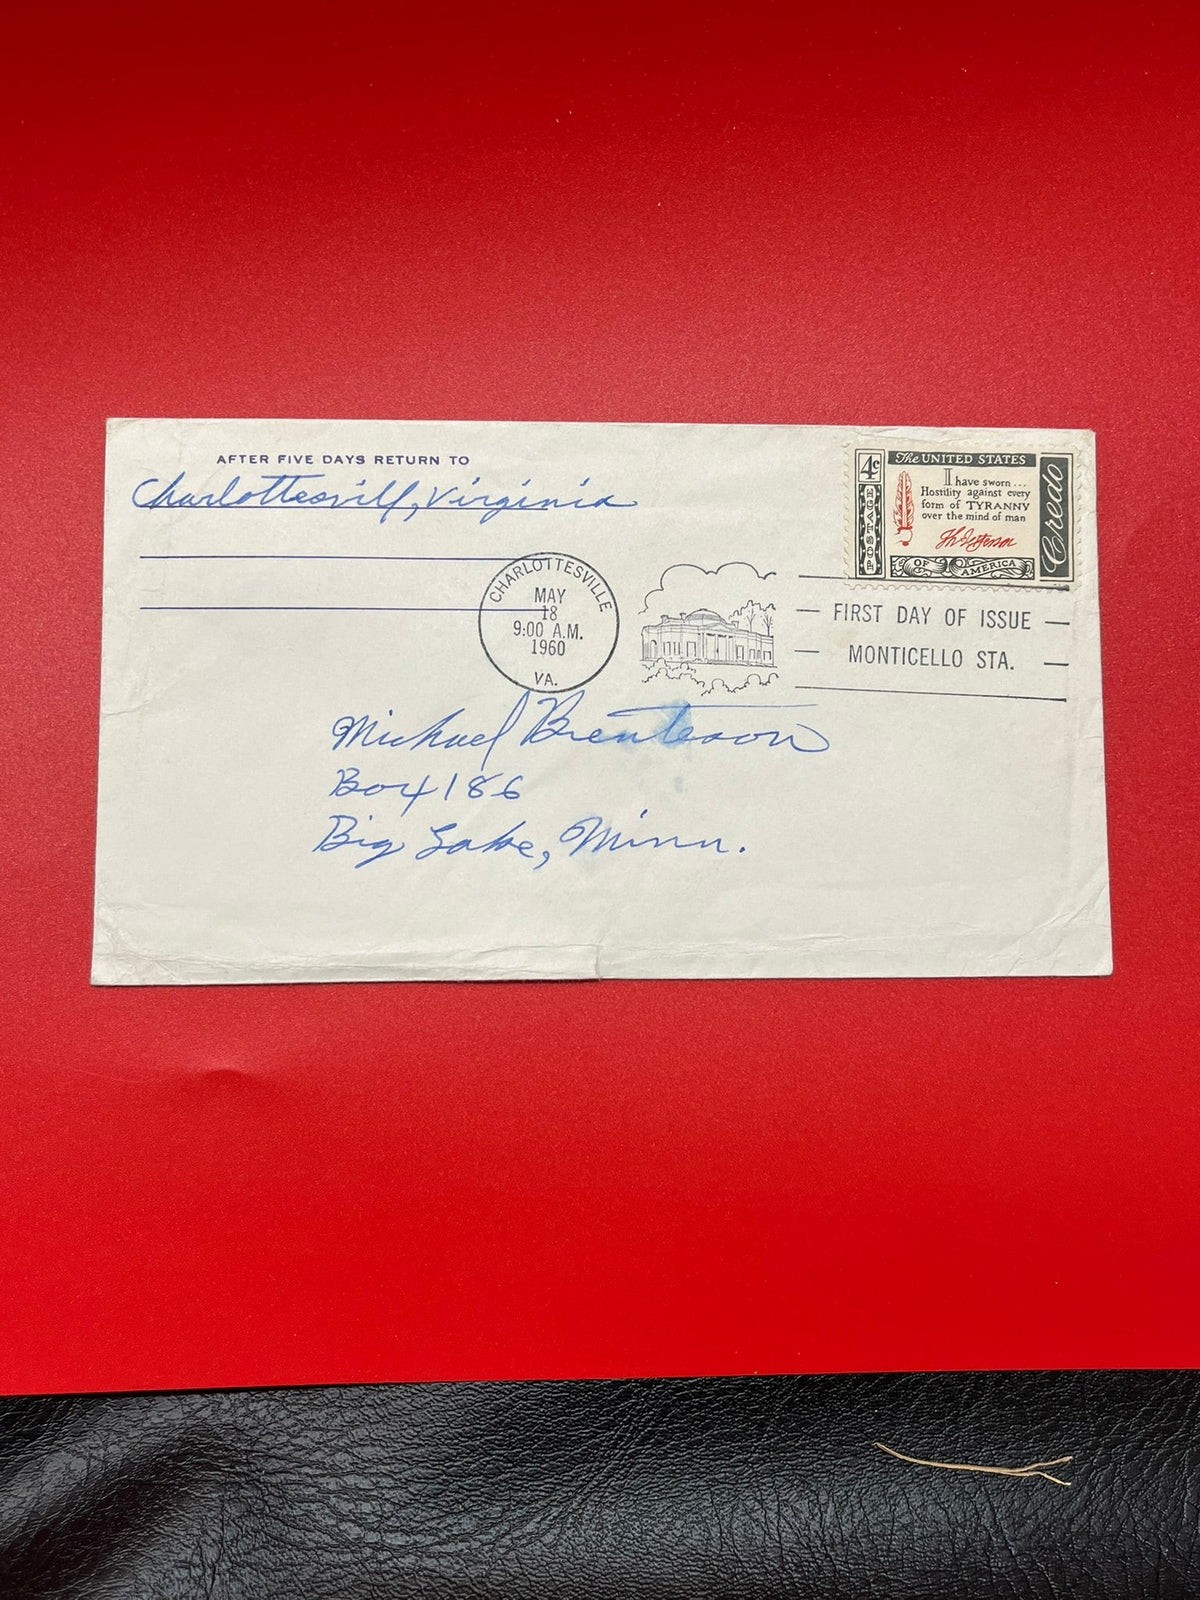 AFTER FIVE DAYS RETURN TO
Charlottesville, Virginia
4c
POSTAGE
The UNITED STATES
I have sworn...
Hostility against every
form of TYRANNY
over the mind of man
Th Jefferson
OF AMERICA
Credo
CHARLOTTESVILLE
MAY
18
9:00 A.M.
1960
VA.
FIRST DAY OF ISSUE
MONTICELLO STA.
Michael Brenteson
Box 186
Big Lake, Minn.